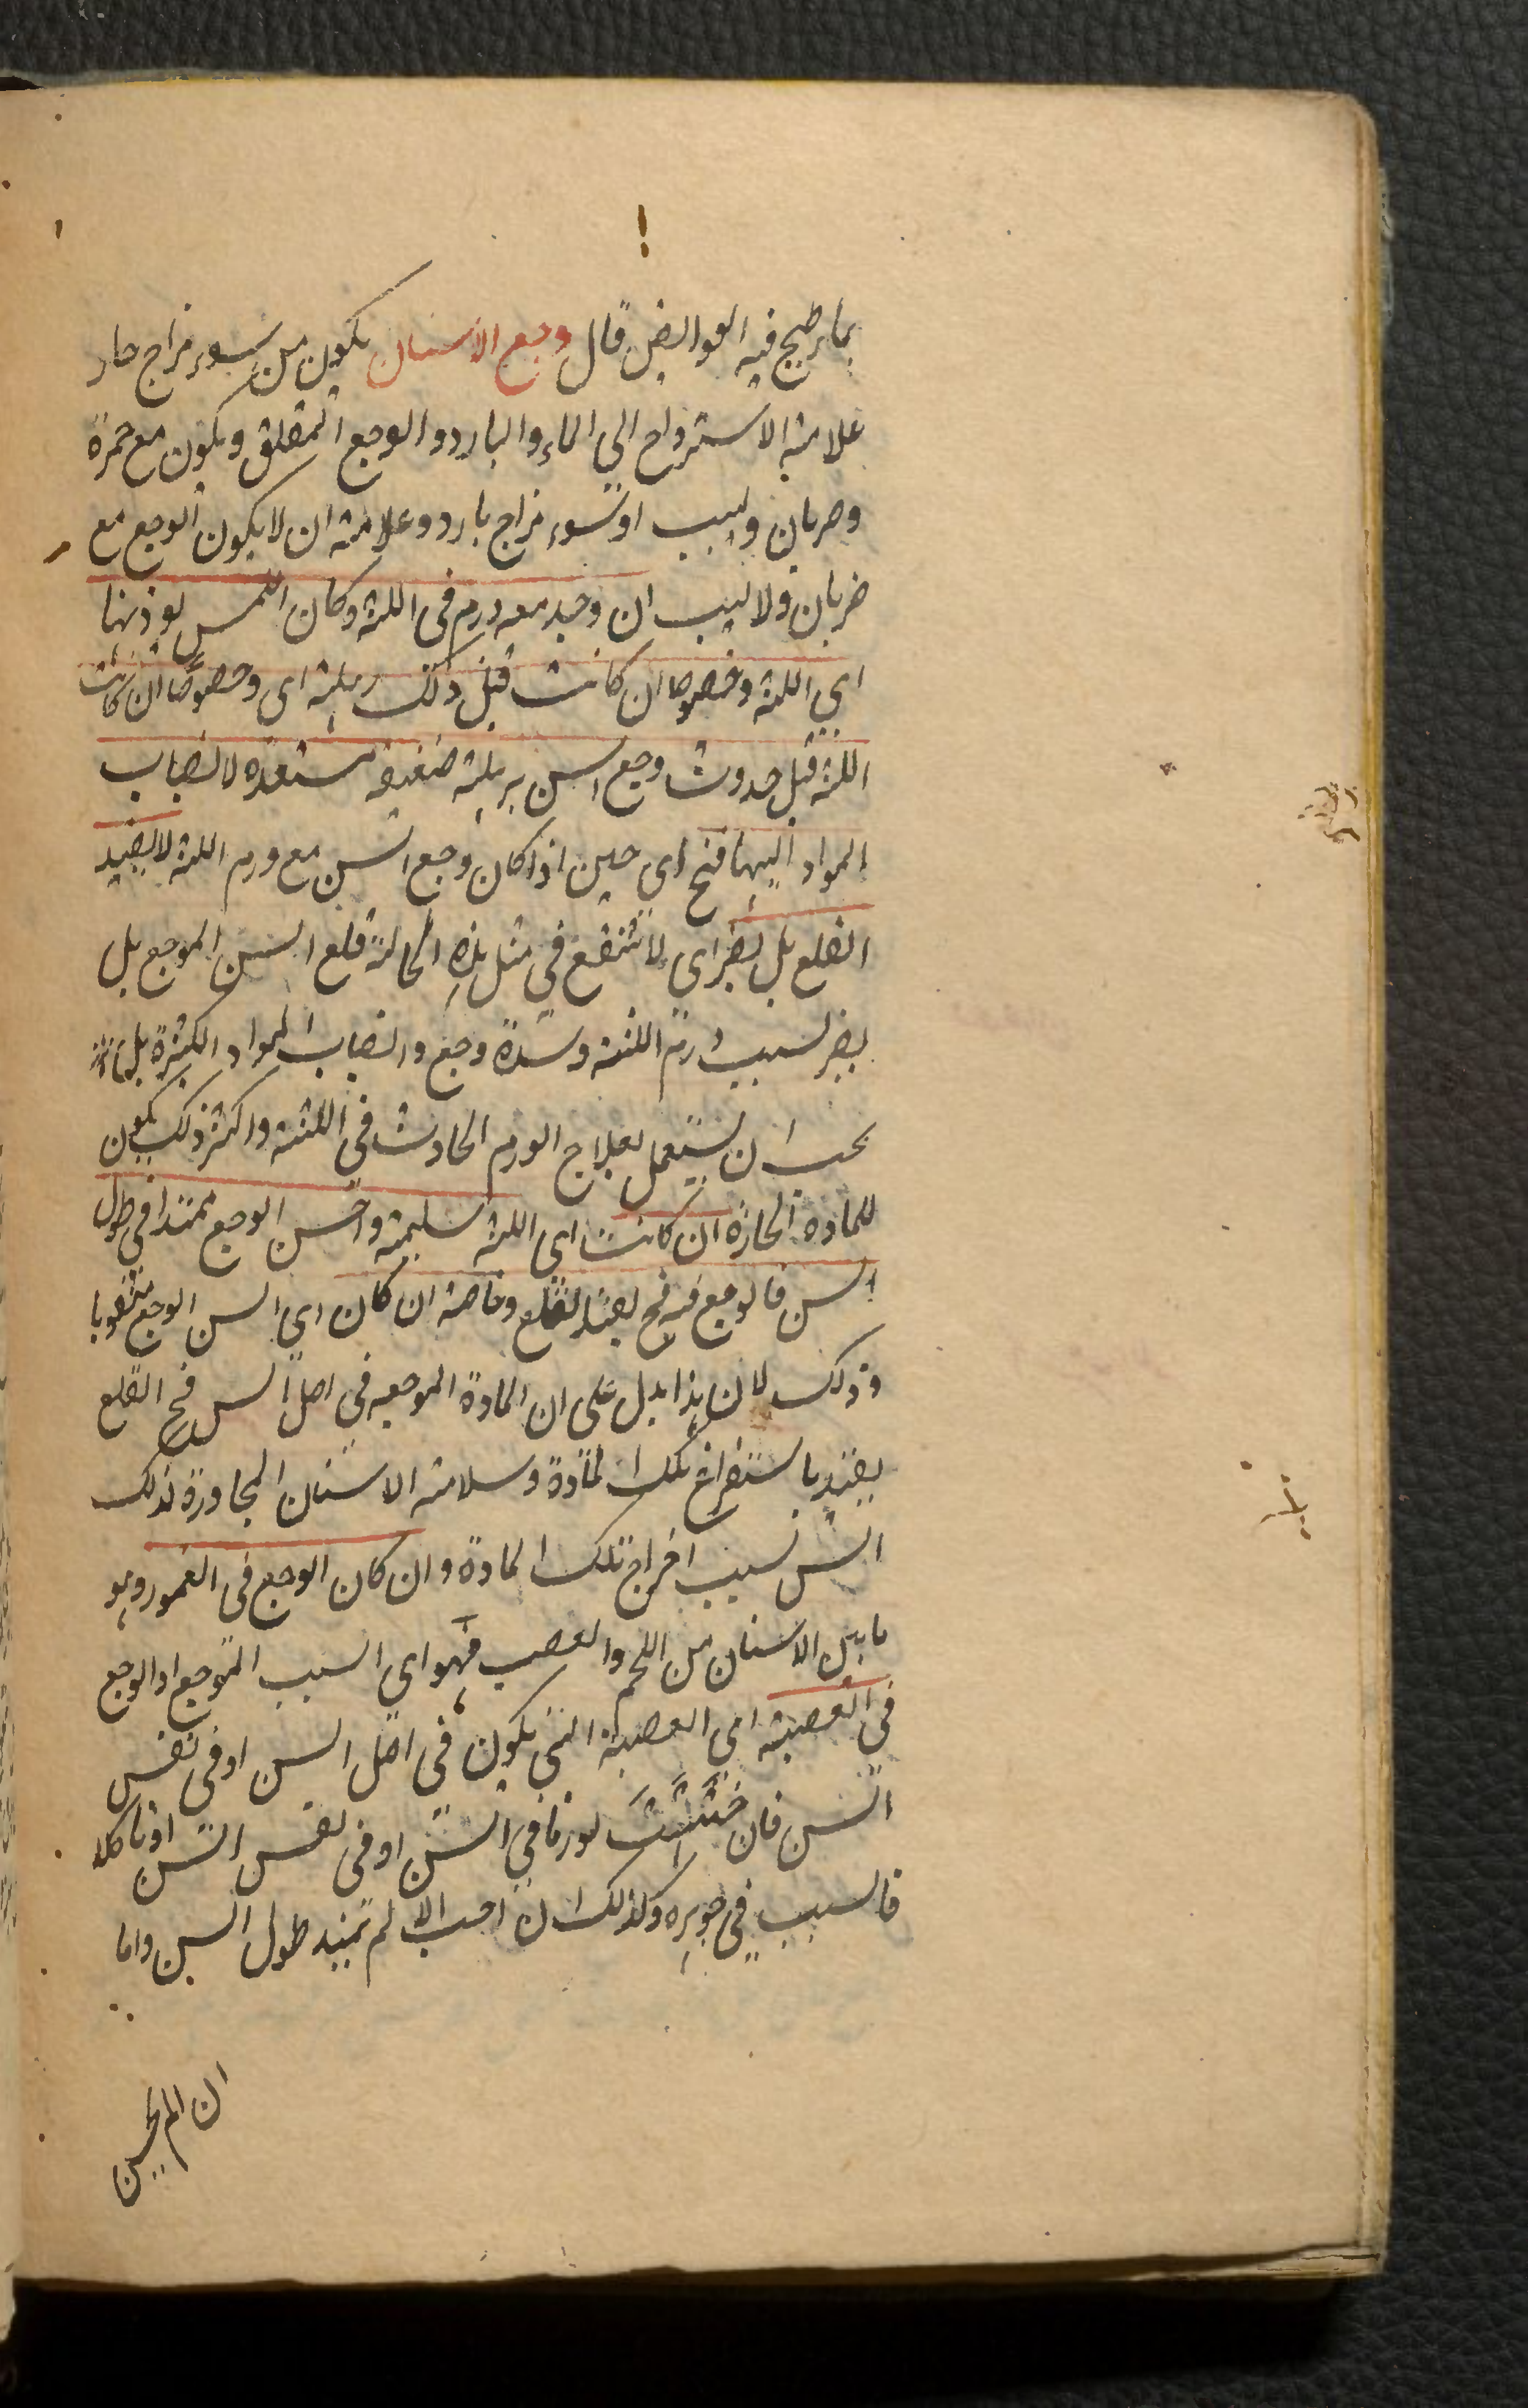 بماء طبخ فيه القوابض قال وجع الاسنان يكون من سوء مزاج حار
علامته الاسترواح الي الماء والبارد والوجع المقلق ويكون مع حمرة
وضربان ولهيب او سوء مزاج بارد وعلامته ان لا يكون الوجع مع
ضربان ولا لهيب ان وجد معه ورم في اللثه وكان اللمس يوذيها
اي اللثه وخصوصا ان كانت قبل ذلك رهلة اي وخصوصا ان كانت
اللثه قبل حدوث وجع السن برهلة ضعيفة مستعدة لانصباب
المواد اليها فح اي حين اذا كان وجع السن مع ورم اللثه لا يفيد
القلع بل يضر اي لا تنفع في مثل هذه الحالة قلع السن الموجع بل
يضر بسبب ورم اللثة وشدة وجع وانصباب المواد الكثيرة بل
يجب ان يستعمل بعلاج الورم الحادث في اللثة واكثر ذلك يكون
للمادة الحارة ان كانت اي اللثه سليمة واحس الوجع ممتدا في طول
السن فالوجع فيه فح يفيد القلع وخاصة ان كان اي السن الوجع مثقوبا
وذلك لان هذا يدل على ان المادة الموجعه في اصل السن فح القلع
يفيد باستفراغ تلك المادة وسلامة الاسنان المجاورة لذلك
السن بسبب اخراج تلك المادة وان كان الوجع في العمور وهو
ما بين الاسنان من اللحم والعصب فهو اي السبب الموجع او الوجع
في العصبة اي العصبة التي يكون في اصل السن او في نفس
السن فان في السن او في نفس السن او تاكلا
فالسبب في جوهره وكذلك ان احس الالم تمتد طول السن واما